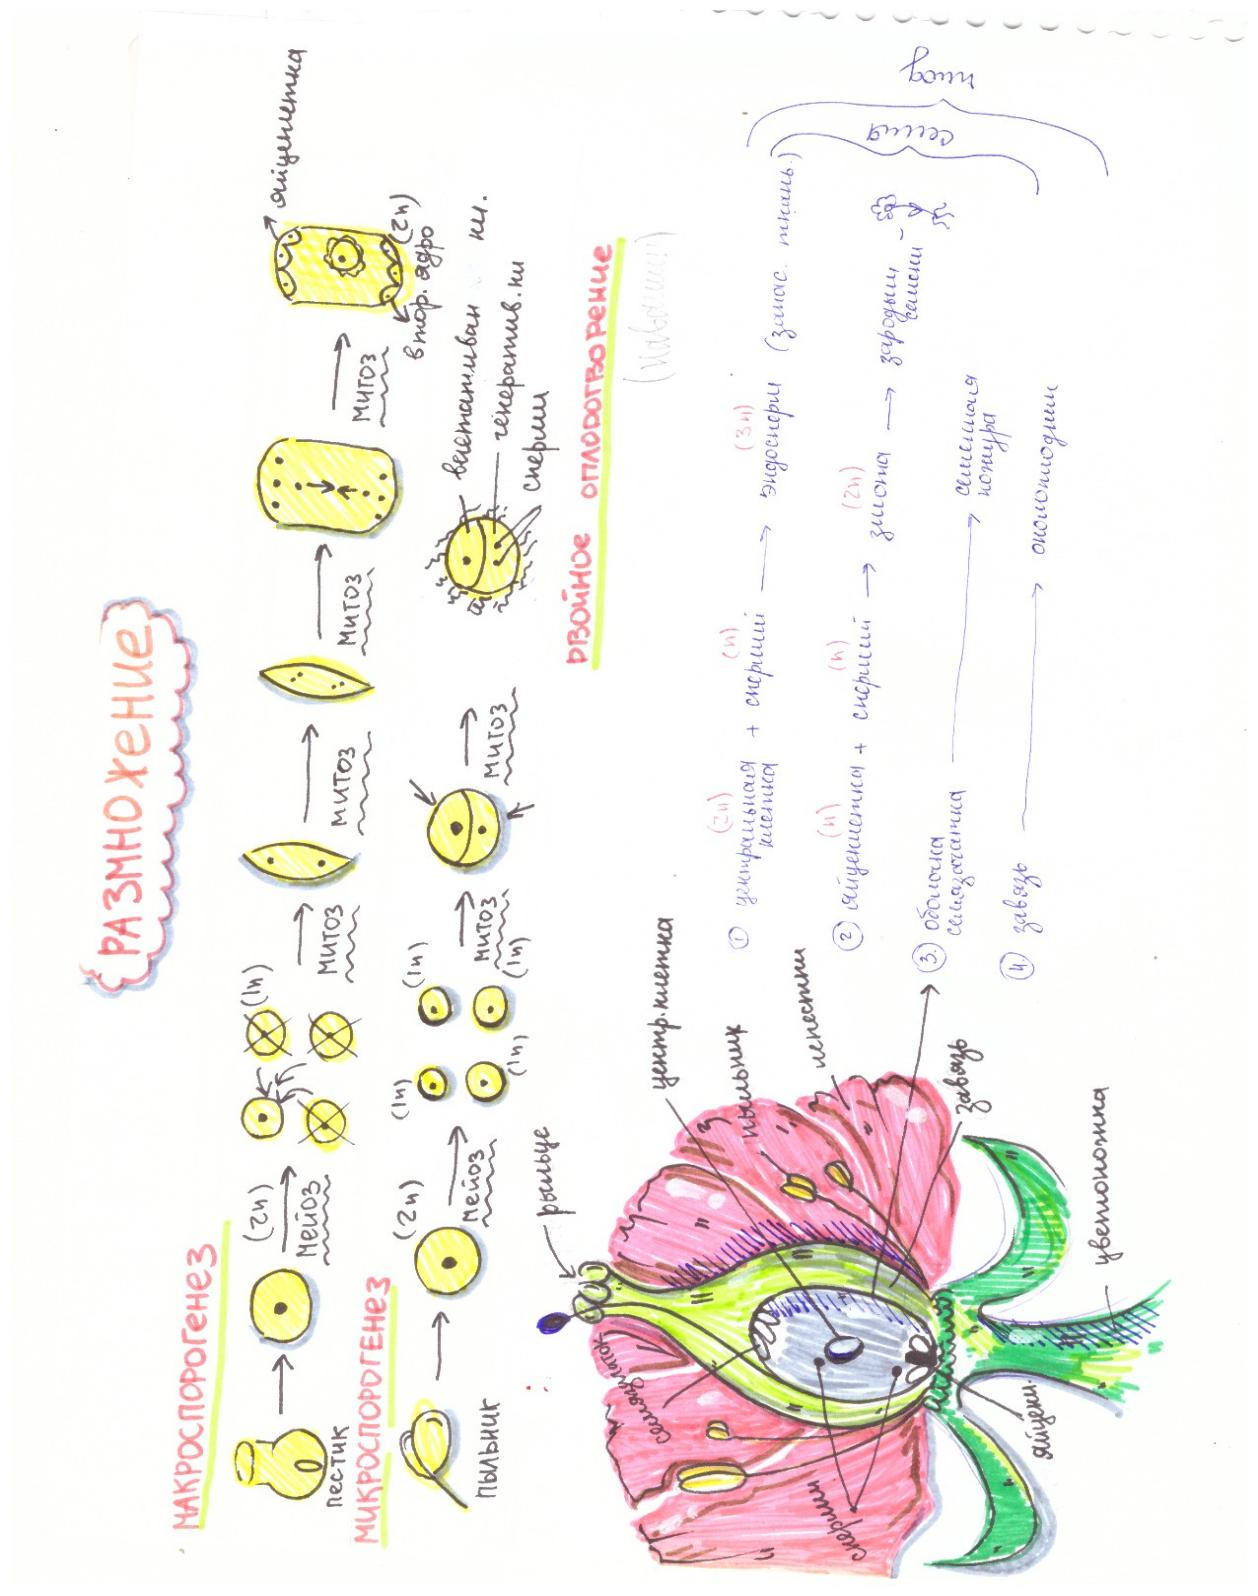 РАЗМНОЖЕНИЕ
МАКРОСПОРОГЕНЕЗ
пестик
(2n)
мейоз
(1n)
митоз
митоз
митоз
митоз
яйцеклетка
втор. ядро
(2n)
МИКРОСПОРОГЕНЕЗ
пыльник
(2n)
мейоз
(1n)
(1n)
(1n)
(1n)
митоз
митоз
вегетативная кл.
генератив. кл
спермии
ДВОЙНОЕ ОПЛОДОТВОРЕНИЕ
(Навашин)
(2n) (n) (3n)
① центральная + спермий → эндосперм (запас. ткань.)
клетка
(n) (n) (2n)
② яйцеклетка + спермий → зигота → зародыш -
семени
③. оболочка → семенная
семязачатка кожура
④ завязь → околоплодник
семя
плод
рыльце
центр. клетка
пыльник
лепестки
завязь
цветоножка
яйцекл.
спермии